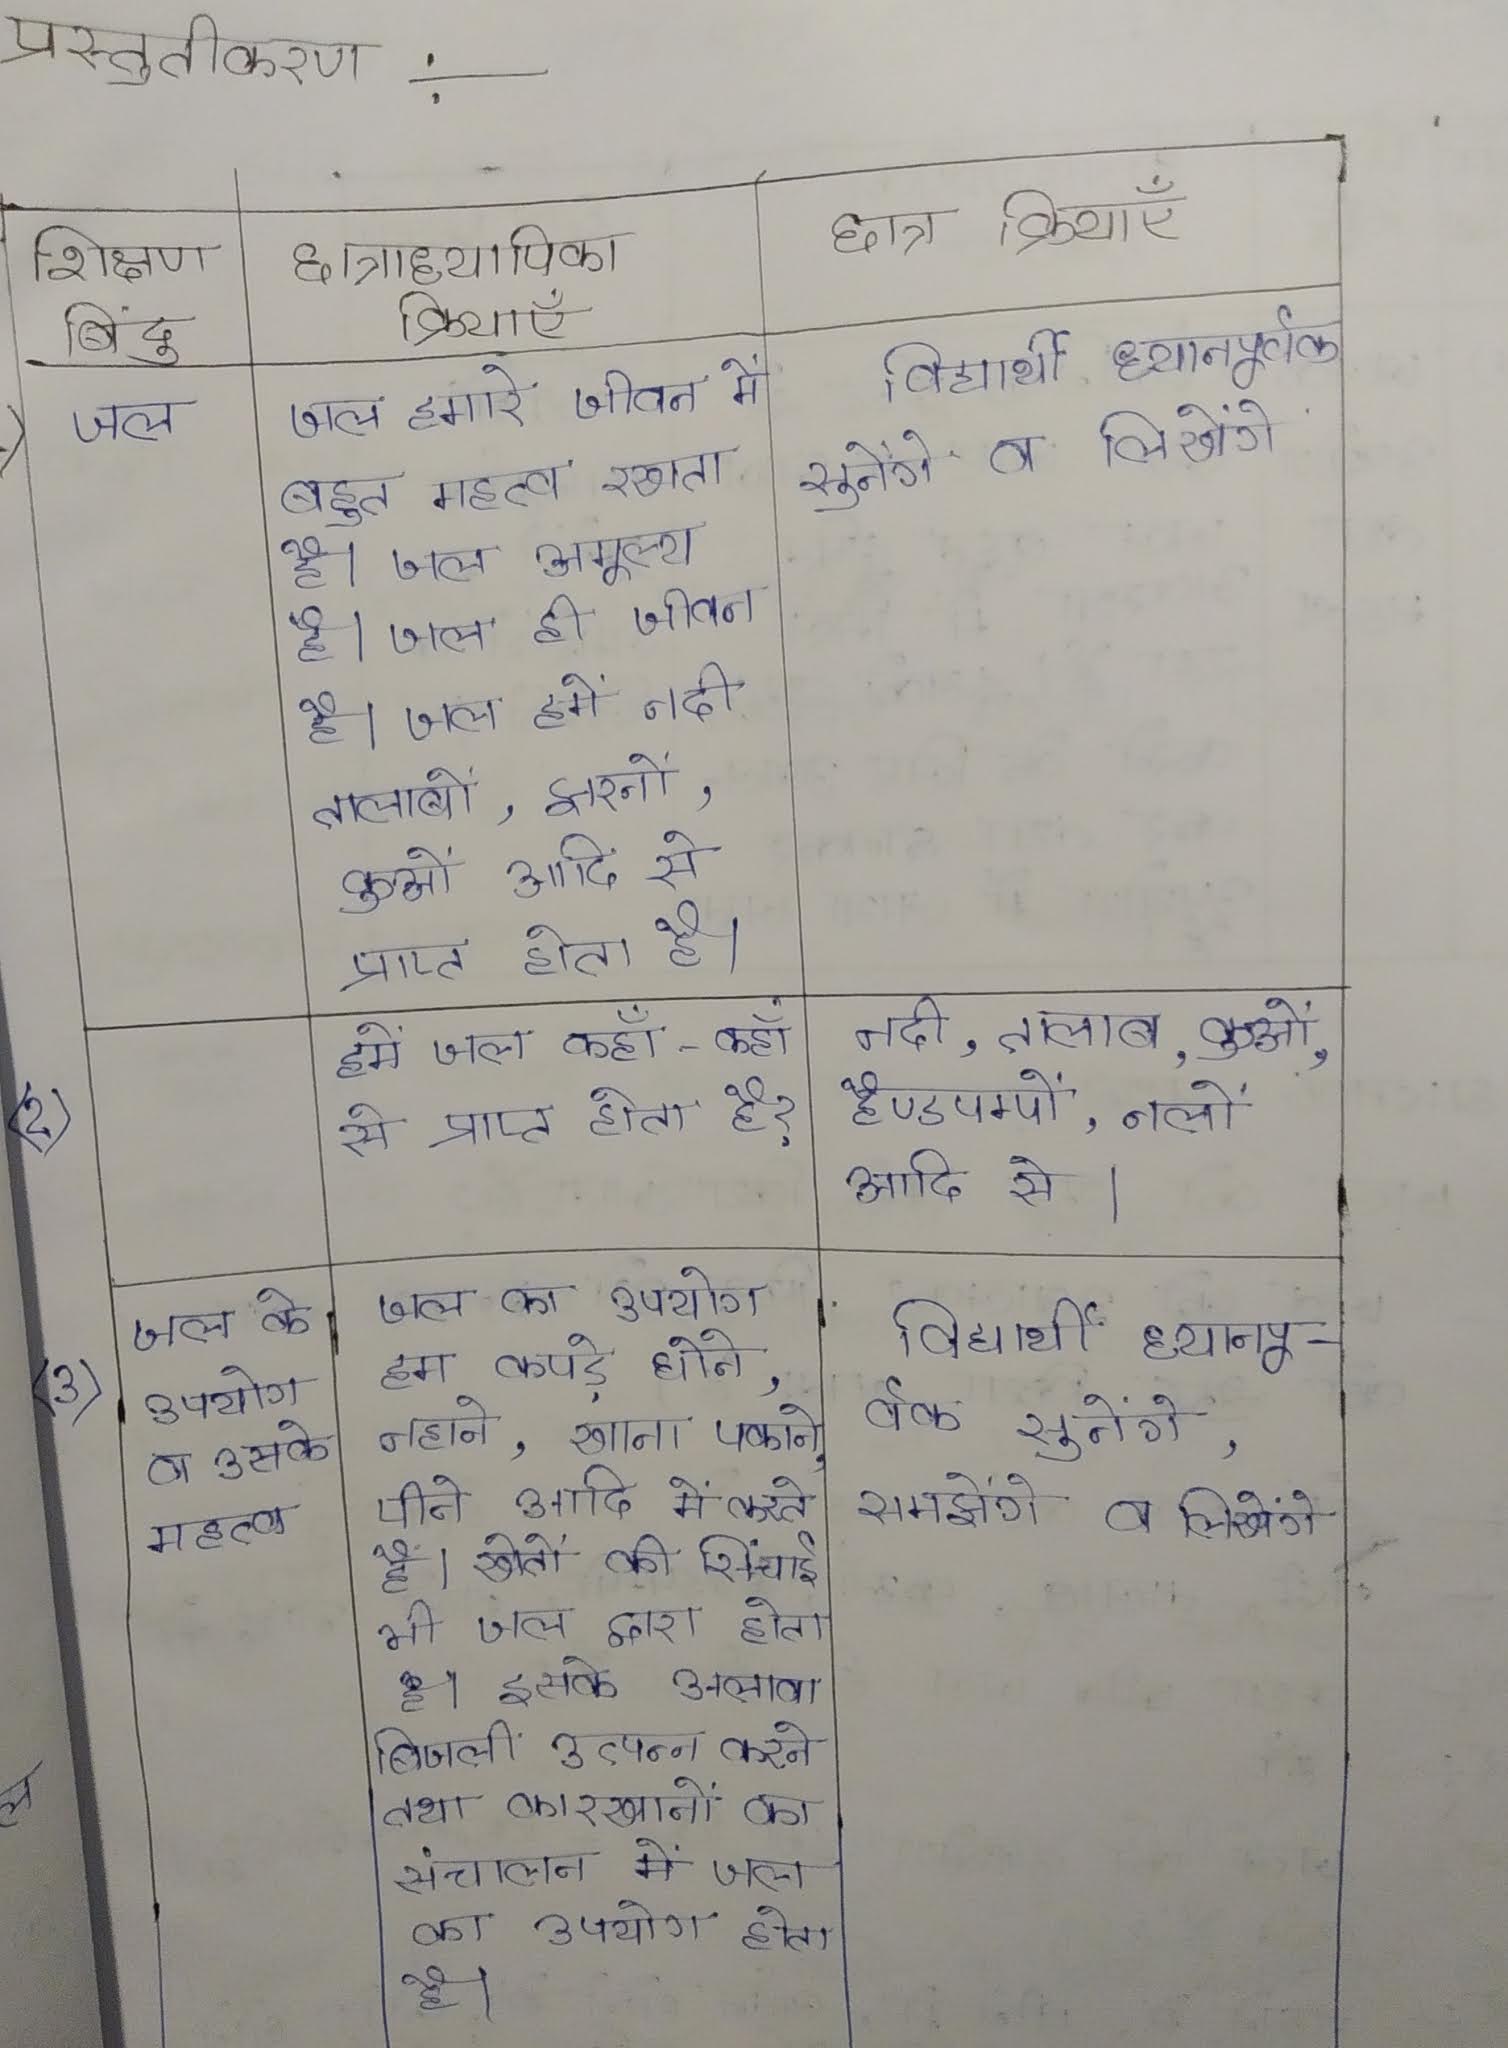 प्रस्तुतीकरण :—
शिक्षण
बिंदु
छात्राध्यापिका
क्रियाएँ
छात्र क्रियाएँ
जल
जल हमारे जीवन में
बहुत महत्व रखता
है। जल अमूल्य
है। जल ही जीवन
है। जल हमें नदी
तालाबों, झरनों,
कुओं आदि से
प्राप्त होता है।
विद्यार्थी ध्यानपूर्वक
सुनेंगे व लिखेंगे
(2)
हमें जल कहाँ - कहाँ
से प्राप्त होता है?
नदी, तालाब, कुओं,
हैण्डपम्पों, नलों
आदि से ।
(3)
जल के
उपयोग
व उसके
महत्व
जल का उपयोग
हम कपड़े धोने,
नहाने, खाना पकाने,
पीने आदि में करते
हैं। खेतों की सिंचाई
भी जल द्वारा होता
है। इसके अलावा
बिजली उत्पन्न करने
तथा कारखानों का
संचालन में जल
का उपयोग होता
है।
विद्यार्थी ध्यानपू-
र्वक सुनेंगे,
समझेंगे व लिखेंगे